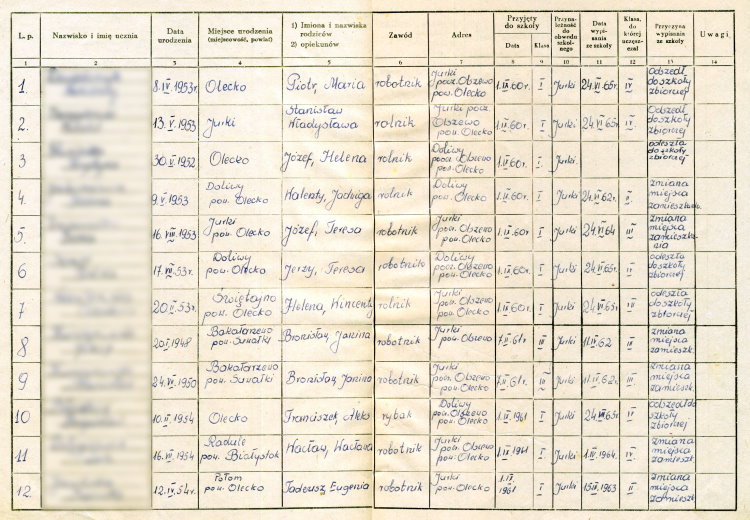 L. p.
Nazwisko i imię ucznia
Data urodzenia
Miejsce urodzenia (miejscowość, powiat)
1) Imiona i nazwiska rodziców
2) opiekunów
Zawód
Adres
Przyjęty do szkoły
Data
Klasa
Przynależność do obwodu szkolnego
Data wypisania ze szkoły
Klasa, do której uczęszczał
Przyczyna wypisania ze szkoły
Uwagi
1 2 3 4 5 6 7 8 9 10 11 12 13 14
1. 8.IV.1953r. Olecko Piotr, Maria robotnik Jurki pocz. Olszewo pow. Olecko 1.IX.60r. I Jurki 24.VI.65r. IV odszedł do szkoły zbiorczej
2. 13.V.1953 Jurki Stanisław Władysława rolnik Jurki pocz Olszewo pow. Olecko 1.IX.60r. I Jurki 24.VI.65r. IV Odszedł do szkoły zbiorczej
3 30.V.1952 Olecko Józef, Helena rolnik Doliwy pocz Olszewo pow. Olecko 1.IX.60r. I Jurki. odeszła do szkoły zbiorczej
4. 9.V.1953 Doliwy pow. Olecko Walenty, Jadwiga rolnik Doliwy pow. Olecko 1.IX.60r. I Jurki 24.VI.62r. II zmiana miejsca
5. 16.VIII.1953 Jurki pow. Olecko Józef, Teresa robotnik Jurki pow. Olecko 1.IX.60r. I Jurki 24.VI.64 zmiana miejsca
6 17.VII.53r. Doliwy pow. Olecko Jerzy, Teresa robotnik Doliwy pow. Olecko 1.IX.60r. I Jurki 24.VI.65r. odeszła do szkoły zbiorczej
7 20.V.53r. Świętajno pow. Olecko Helena, Wincenty rolnik Jurki pow. Olecko 1.IX.60r. I Jurki 24.VI.65r. odeszła do szkoły zbiorczej
8 20.I.1948 Bakałarzewo pow. Suwałki Bronisław, Janina robotnik Jurki pow. Olszewo Jurki zmiana miejsca zamieszk.
9 24.VII.1950 Bakałarzewo pow. Suwałki Bronisław, Janina robotnik Jurki pocz. Olszewo pow. Olecko Jurki zmiana miejsca zamieszk.
10 10.II.1954 Olecko Franciszek, rybak Doliwy pow. Olecko 1.IX.1961 I Jurki IV odszedł do szkoły zbiorczej
11 16.VII.1954 Radule pow. Białystok Wacław, Wacława robotnik Jurki pow. Olecko 1.IX.1961 I Jurki zmiana miejsca zamieszk
12. 12.IV.54r. Połom pow. Olecko Tadeusz, Eugenia robotnik Jurki pow. Olecko 1.IX.1961 I Jurki zmiana miejsca zamieszk